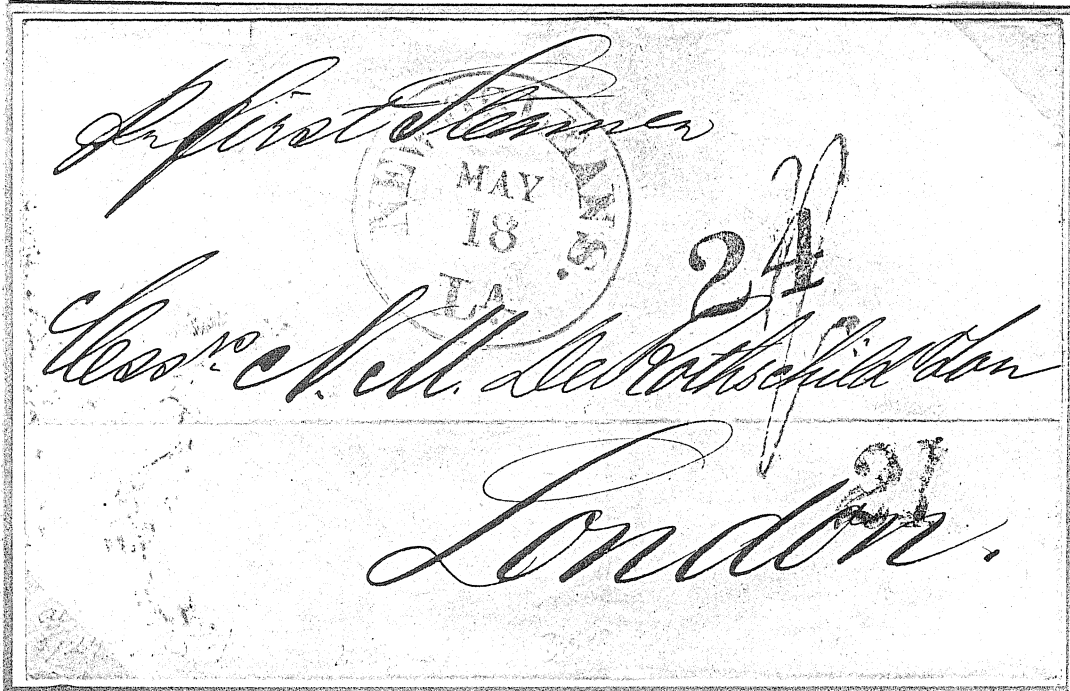 Per first Steamer
NEW ORLEANS.
MAY
18
LA
24
Messrs. N. M. De Rothschild & Son
21
London.